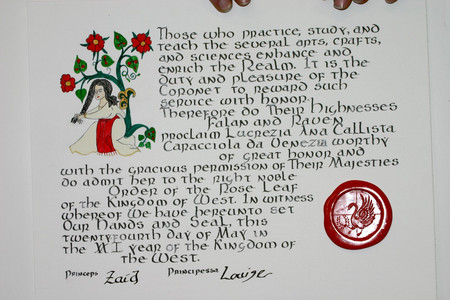 Those who practice, study, and
teach the several arts, crafts,
and sciences enhance and
enrich the Realm. It is the
duty and pleasure of the
Coronet to reward such
service with honor.
Therefore do Their Highnesses
Falan and Raven
proclaim Lucrezia Ana Callista
Caracciola da Venezia worthy
of great honor and
with the gracious permission of Their Majesties
do admit her to the right noble
Order of the Rose Leaf
of the Kingdom of West. In witness
whereof We have hereunto set
Our Hands and Seal, this
twentyfourth day of May in
the XXI year of the Kingdom of
the West.
Princeps Zaid Principessa Louise